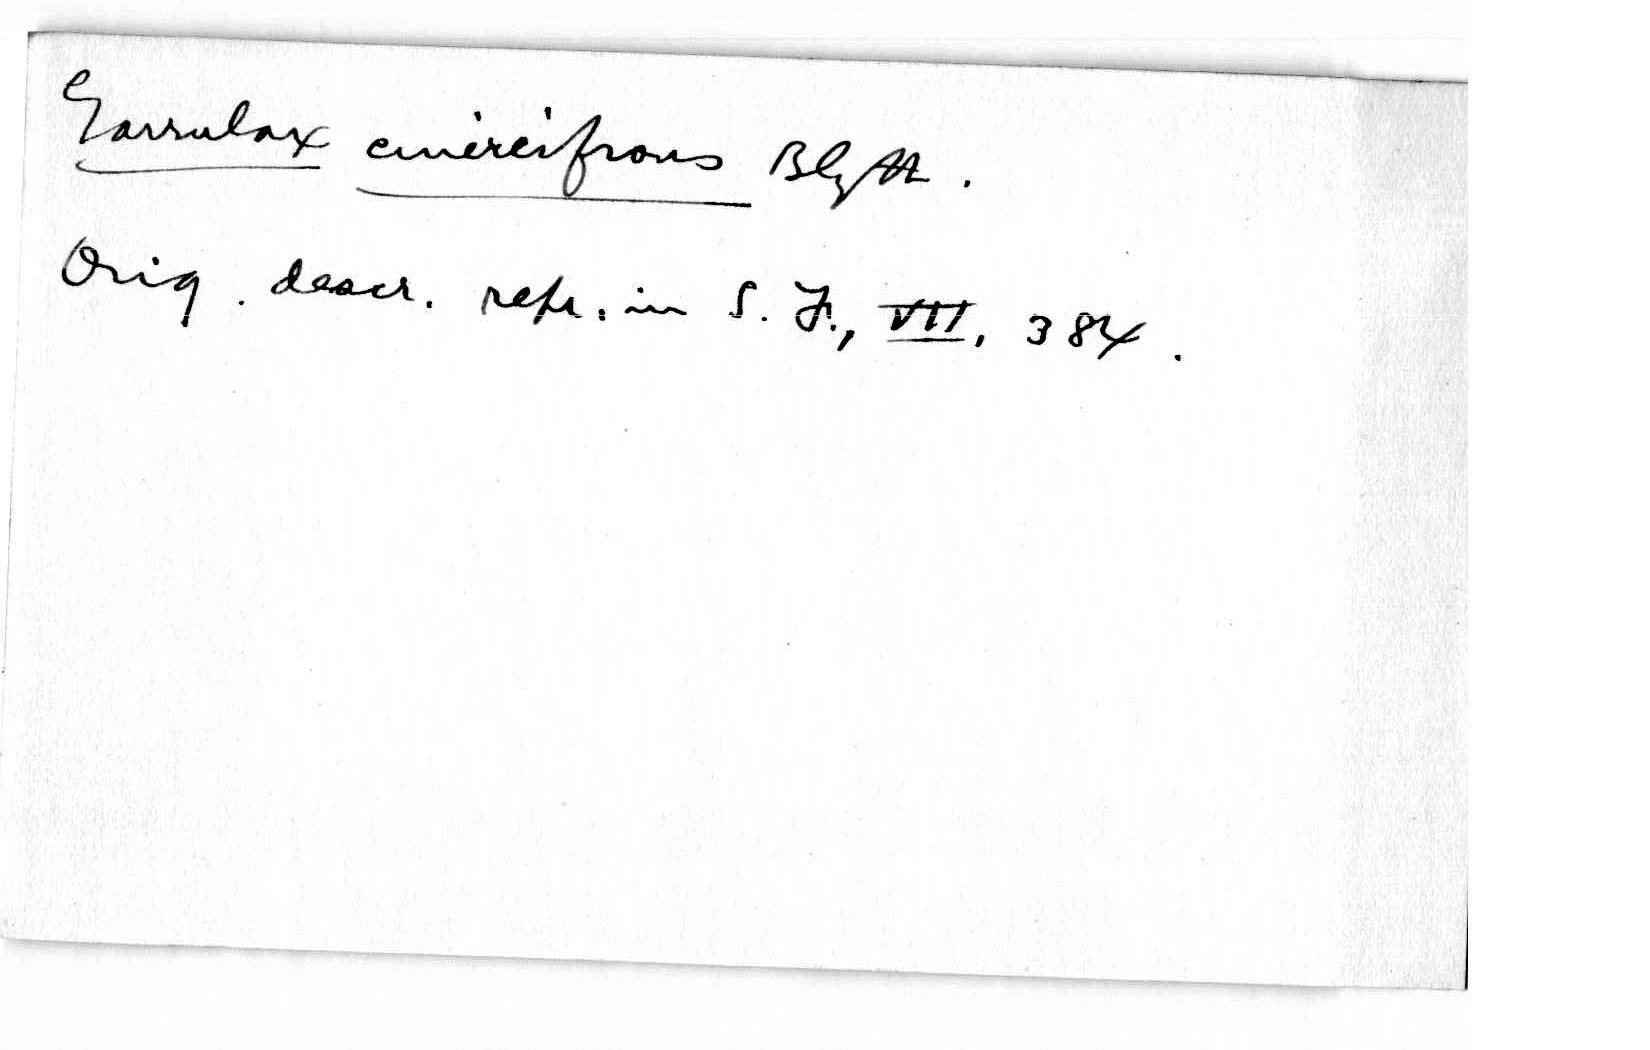 Garrulax cinereifrons Blyth.
Orig. descr. repr. in S. F., VII, 384.